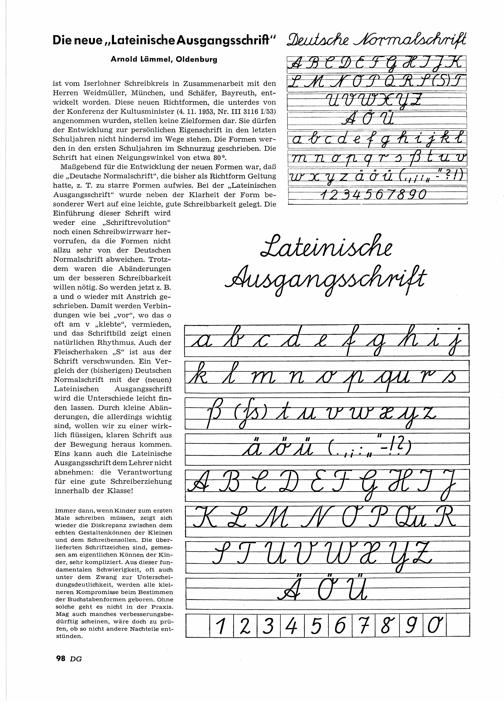 Die neue „Lateinische Ausgangsschrift"
Arnold Lämmel, Oldenburg
ist vom Iserlohner Schreibkreis in Zusammenarbeit mit den
Herren Weidmüller, München, und Schäfer, Bayreuth, ent-
wickelt worden. Diese neuen Richtformen, die unterdes von
der Konferenz der Kultusminister (4. 11. 1953, Nr. III 3116 I/53)
angenommen wurden, stellen keine Zielformen dar. Sie dürfen
der Entwicklung zur persönlichen Eigenschrift in den letzten
Schuljahren nicht hindernd im Wege stehen. Die Formen wer-
den in den ersten Schuljahren im Schnurzug geschrieben. Die
Schrift hat einen Neigungswinkel von etwa 80°.
Maßgebend für die Entwicklung der neuen Formen war, daß
die „Deutsche Normalschrift", die bisher als Richtform Geltung
hatte, z. T. zu starre Formen aufwies. Bei der „Lateinischen
Ausgangsschrift" wurde neben der Klarheit der Form be-
sonderer Wert auf eine leichte, gute Schreibbarkeit gelegt. Die
Einführung dieser Schrift wird
weder eine „Schriftrevolution"
noch einen Schreibwirrwarr her-
vorrufen, da die Formen nicht
allzu sehr von der Deutschen
Normalschrift abweichen. Trotz-
dem waren die Abänderungen
um der besseren Schreibbarkeit
willen nötig. So werden jetzt z. B.
a und o wieder mit Anstrich ge-
schrieben. Damit werden Verbin-
dungen wie bei „vor", wo das o
oft am v „klebte", vermieden,
und das Schriftbild zeigt einen
natürlichen Rhythmus. Auch der
Fleischerhaken „S" ist aus der
Schrift verschwunden. Ein Ver-
gleich der (bisherigen) Deutschen
Normalschrift mit der (neuen)
Lateinischen Ausgangsschrift
wird die Unterschiede leicht fin-
den lassen. Durch kleine Abän-
derungen, die allerdings wichtig
sind, wollen wir zu einer wirk-
lich flüssigen, klaren Schrift aus
der Bewegung heraus kommen.
Eins kann auch die Lateinische
Ausgangsschrift dem Lehrer nicht
abnehmen: die Verantwortung
für eine gute Schreiberziehung
innerhalb der Klasse!
Immer dann, wenn Kinder zum ersten
Male schreiben müssen, zeigt sich
wieder die Diskrepanz zwischen dem
echten Gestaltenkönnen der Kleinen
und dem Schreibensollen. Die über-
lieferten Schriftzeichen sind, gemes-
sen am eigentlichen Können der Kin-
der, sehr kompliziert. Aus dieser fun-
damentalen Schwierigkeit, oft auch
unter dem Zwang zur Unterschei-
dungsdeutlichkeit, werden alle klei-
neren Kompromisse beim Bestimmen
der Buchstabenformen geboren. Ohne
solche geht es nicht in der Praxis.
Mag auch manches verbesserungsbe-
dürftig scheinen, wäre doch zu prü-
fen, ob so nicht andere Nachteile ent-
stünden.
98 DG
Deutsche Normalschrift
A B C D E F G H I J K
L M N O P Q R S (S) T
U V W X Y Z
Ä Ö Ü
a b c d e f g h i j k l
m n o p q r s ß t u v
w x y z ä ö ü (.,;:„"-?!)
1 2 3 4 5 6 7 8 9 0
Lateinische
Ausgangsschrift
a b c d e f g h i j
k l m n o p qu r s
ß (ſs) t u v w x y z
ä ö ü (.,;:„"-!?)
A B C D E F G H I J
K L M N O P Qu R
S T U V W X Y Z
Ä Ö Ü
1 2 3 4 5 6 7 8 9 0